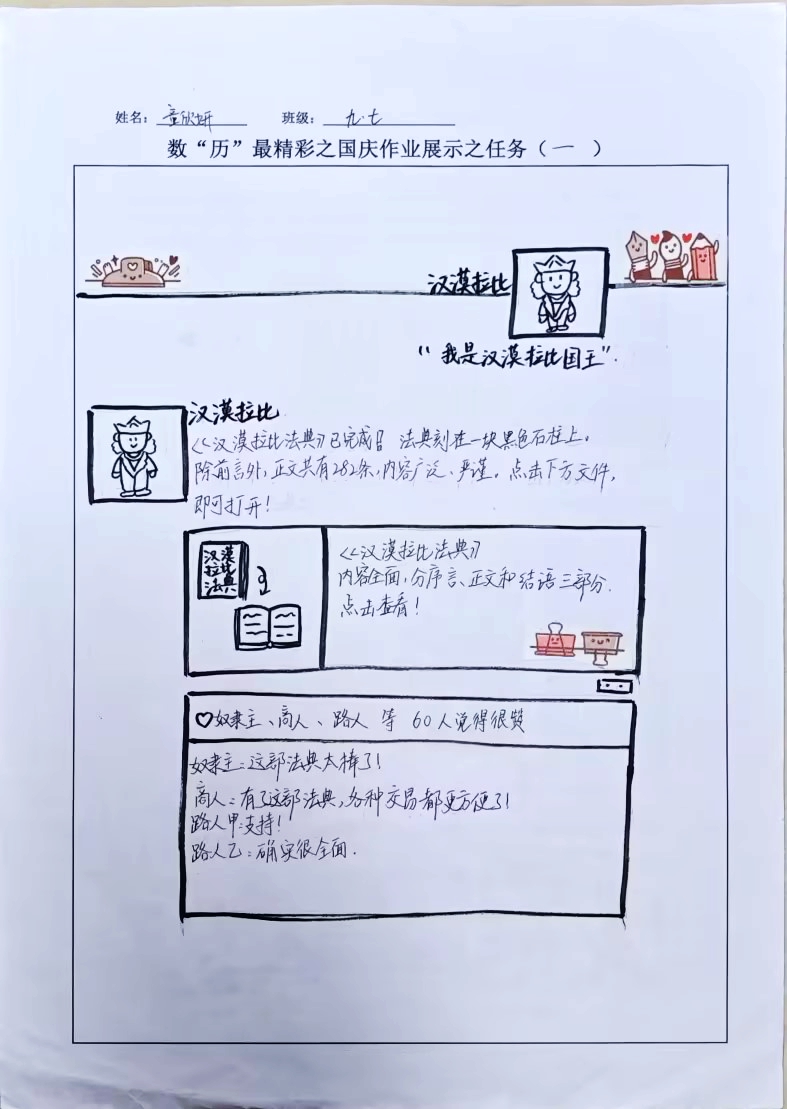 姓名：童欣妍 班级：九.七
数“历”最精彩之国庆作业展示之任务（一 ）
汉漠拉比
“我是汉漠拉比国王”.
汉漠拉比
《汉漠拉比法典》已完成！法典刻在一块黑色石柱上。
除前言外，正文共有282条，内容广泛、严谨。点击下方文件，
即可打开！
汉漠
拉比
法典
《汉漠拉比法典》
内容全面，分序言、正文和结语三部分.
点击查看！
奴隶主、商人、路人 等 60人觉得很赞
奴隶主：这部法典太棒了！
商人：有了这部法典，各种交易都更方便了！
路人甲：支持！
路人乙：确实很全面.